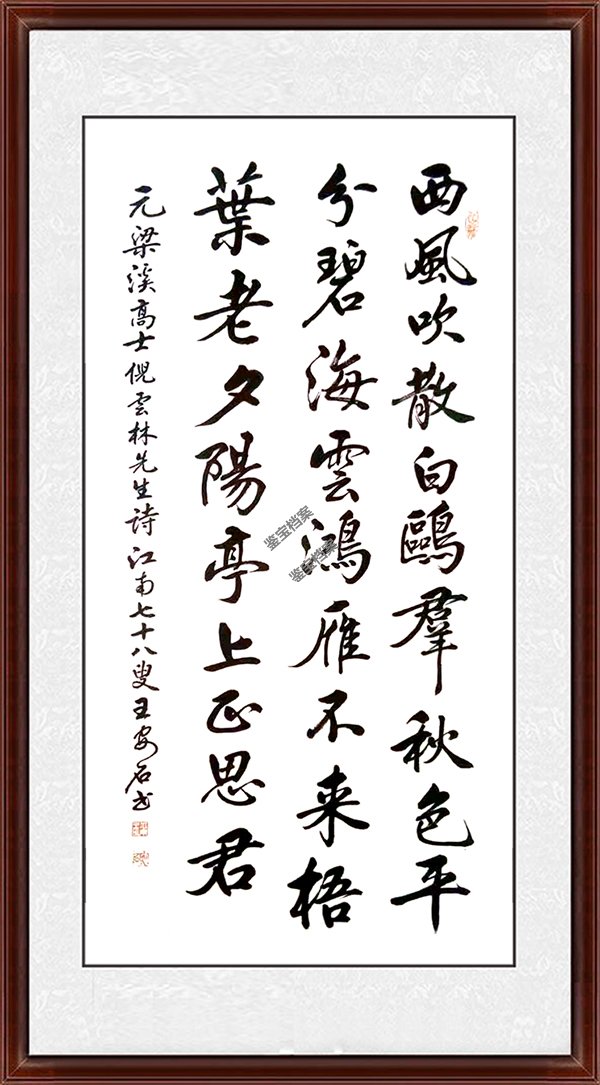 西風吹散白鷗羣秋色平
分碧海雲鴻雁不来梧
葉老夕陽亭上正思君
元梁溪高士倪雲林先生詩江南七十八叟王安石书
鉴宝档案
鉴宝档案